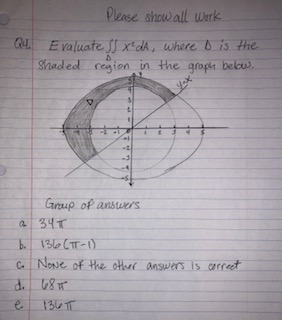 Please show all work
Q4. Evaluate ∬ x² dA, where D is the
D
shaded region in the graph below.
y=x
D
Group of answers
a 34π
b. 136(π-1)
c. None of the other answers is correct
d. 68π
e 136π